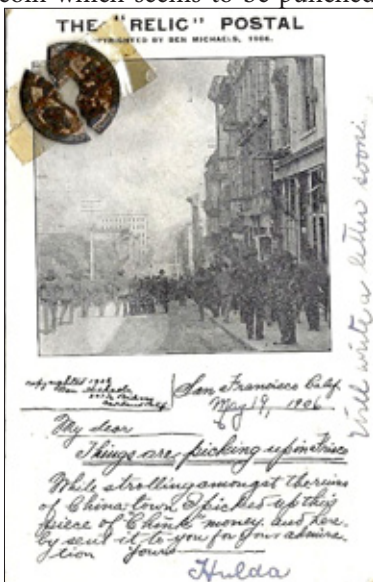 coin which seems to be punched
THE "RELIC" POSTAL
COPYRIGHTED BY BEN MICHAELS, 1906.
copyrighted 1906
Ben Michaels
San Francisco Calif.
May 19, 1906
My dear
Things are picking up in Frisco
While strolling amongst the ruins
of China town I picked up this
piece of "Chink" money, and here
by send it to you for your admira
tion yours
Hulda
Will write a letter soon.